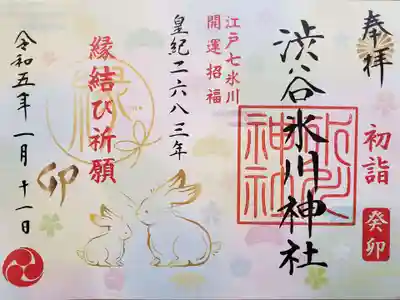 奉拝
初詣
癸卯
渋谷氷川神社
氷川神社
江戸七氷川
開運招福
皇紀二六八三年
縁
縁結び祈願
卯
令和五年一月十一日